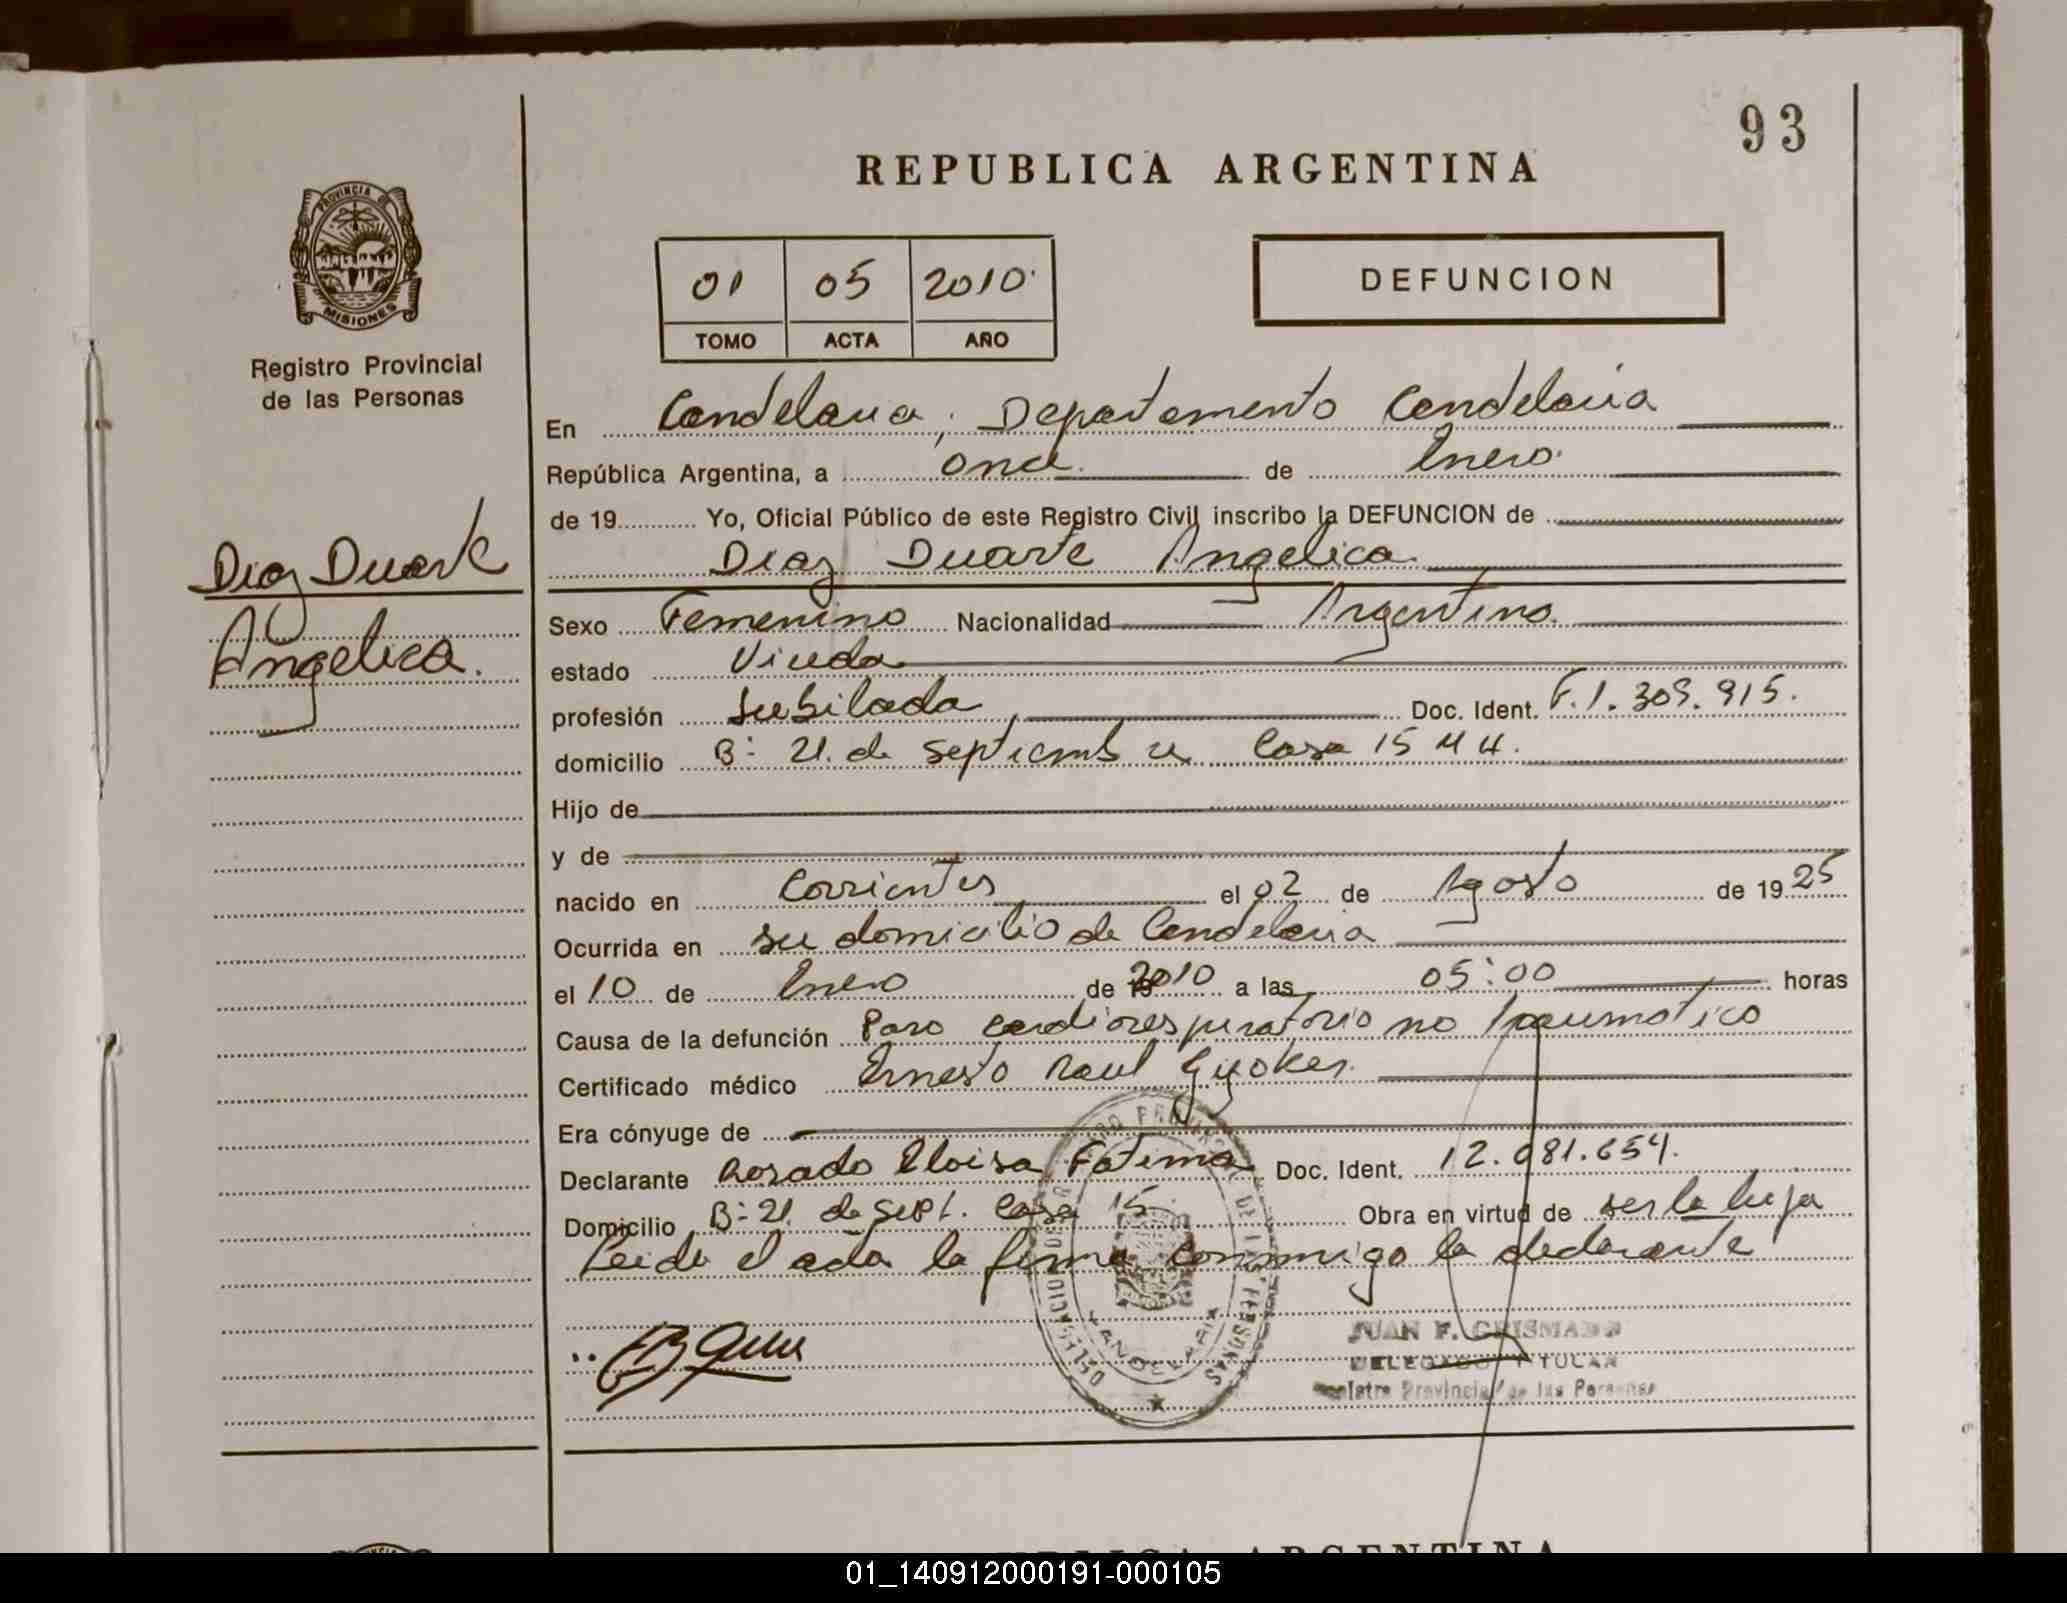 93
REPUBLICA ARGENTINA
PROVINCIA DE
MISIONES
Registro Provincial
de las Personas
01 05 2010
TOMO ACTA AÑO
DEFUNCION
En Candelaria, Departamento Candelaria
República Argentina, a once de Enero
de 19 Yo, Oficial Público de este Registro Civil inscribo la DEFUNCION de
Diaz Duarte Angelica
Diaz Duarte
Angelica.
Sexo Femenino Nacionalidad Argentina.
estado Viuda
profesión Jubilada Doc. Ident. F.1.309.915.
domicilio B: 21. de septiembre Casa 15 M 4.
Hijo de
y de
nacido en Corrientes el 02 de Agosto de 1925
Ocurrida en su domicilio de Candelaria
el 10 de Enero de 2010 a las 05:00 horas
Causa de la defunción Paro cardiorespiratorio no traumatico
Certificado médico Ernesto Raul
Era cónyuge de
Declarante Rosado Eloisa Fatima Doc. Ident. 12.081.654.
Domicilio B: 21. de sept. casa 15. Obra en virtud de ser la hija
Leida el acta la firma conmigo la declarante
JUAN F. CRISMADO
DELEGADO TITULAR
Registro Provincial de las Personas
REPUBLICA ARGENTINA
01_140912000191-000105